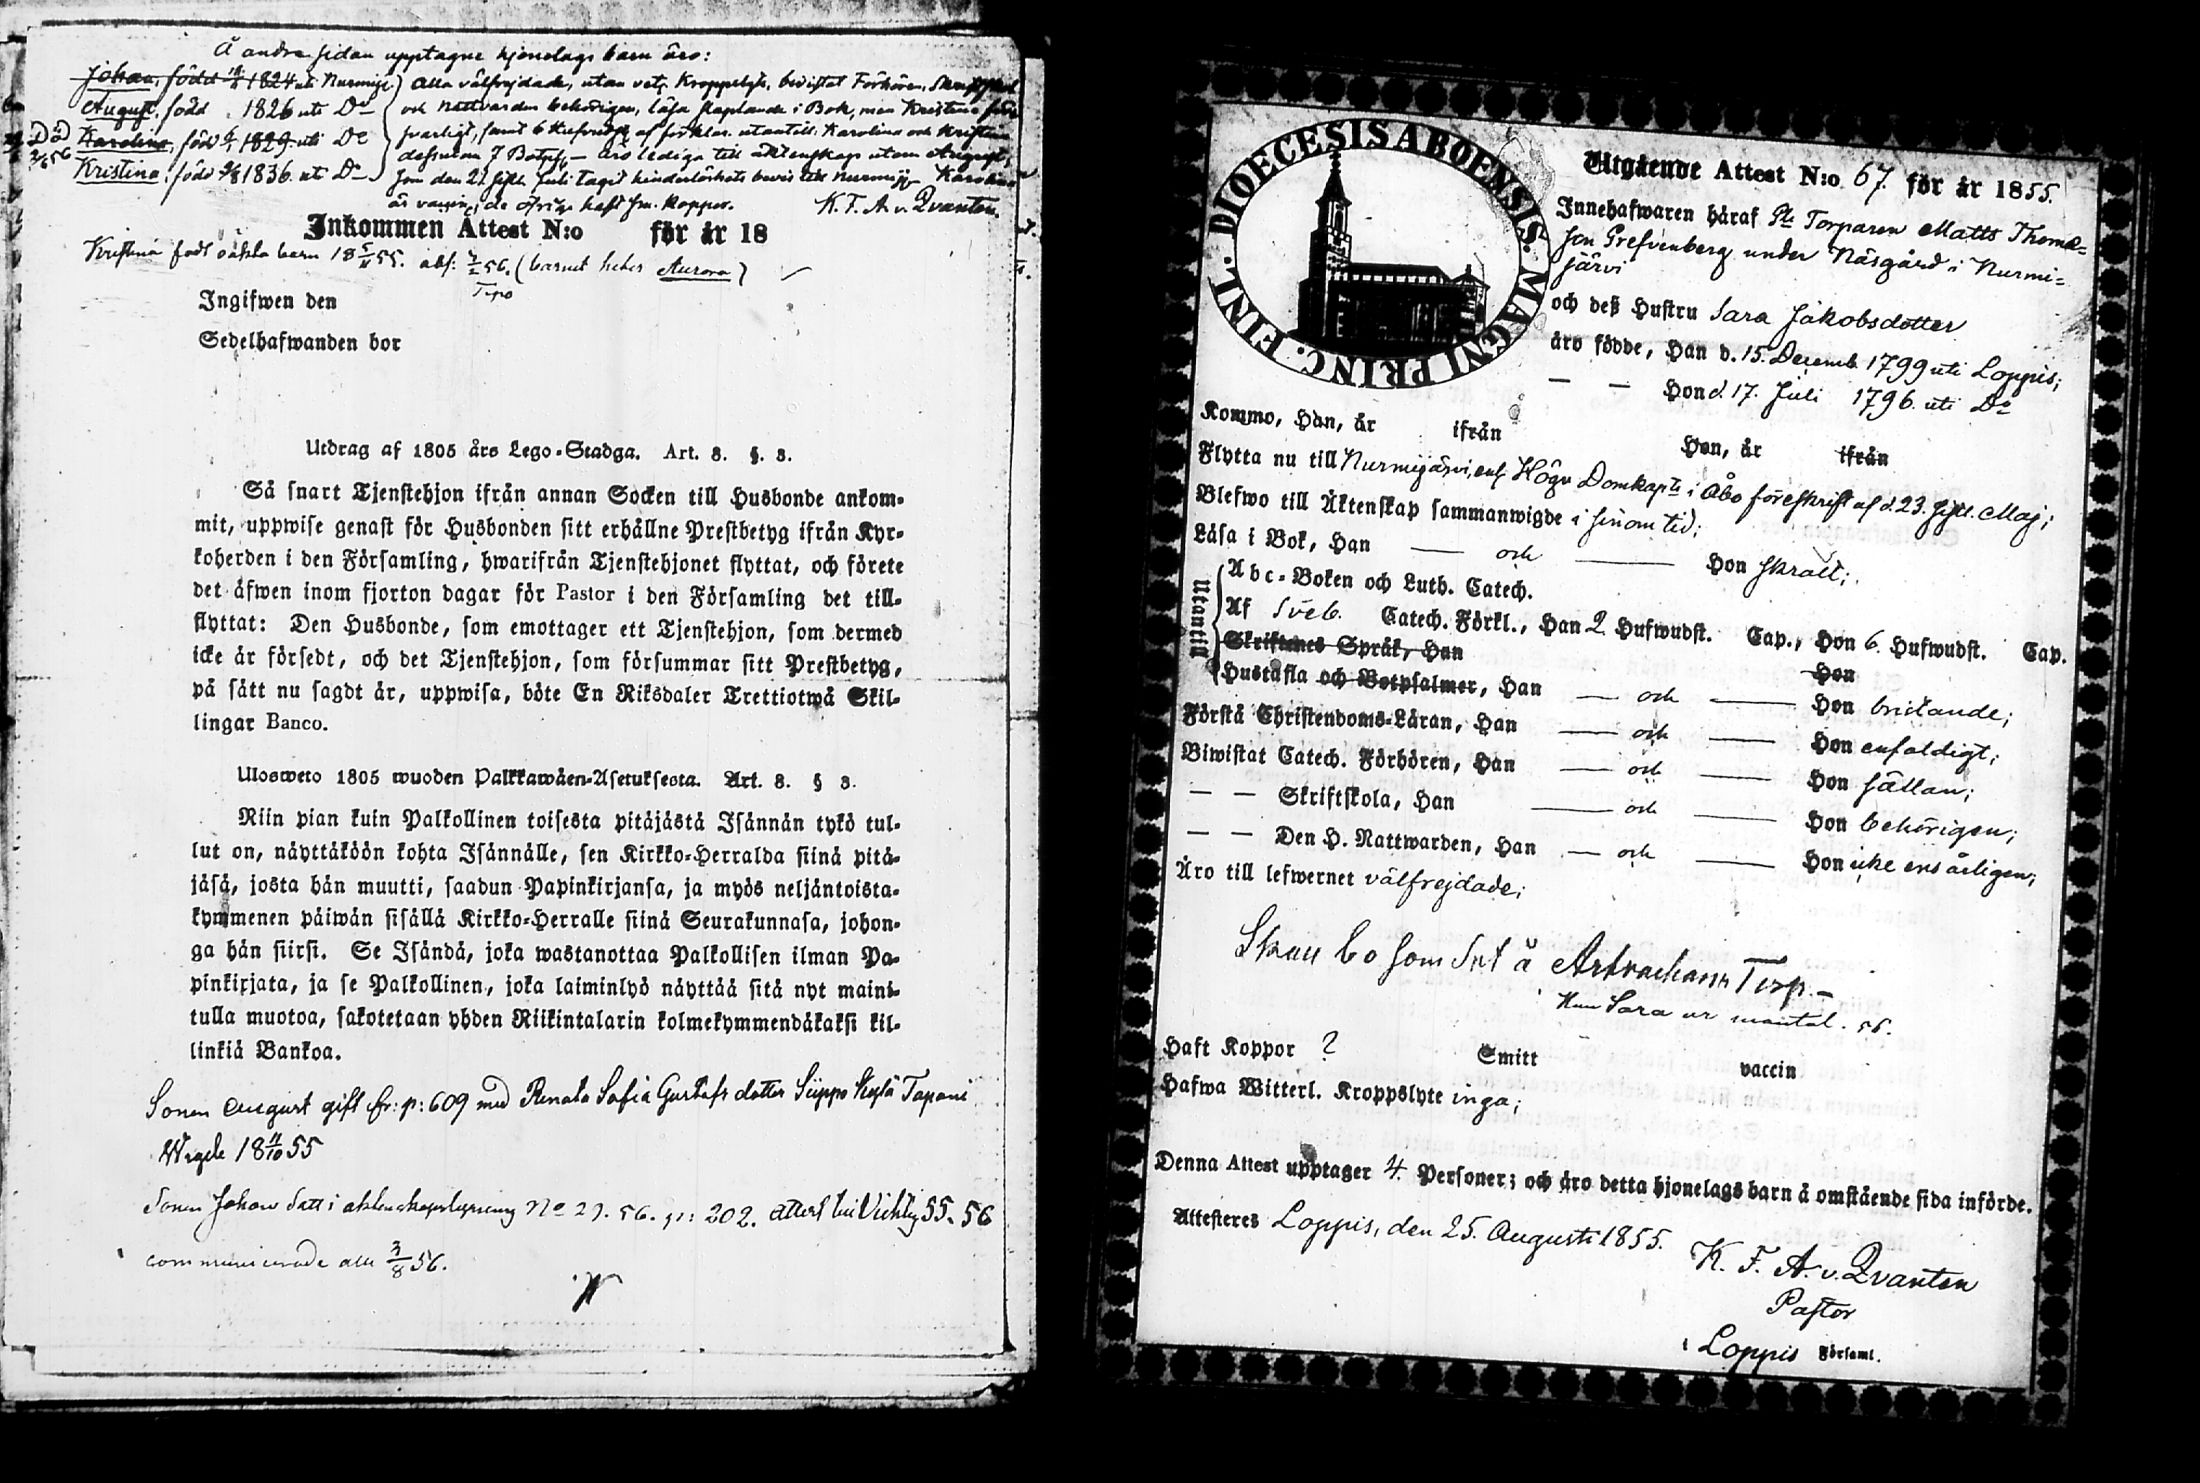 Å andra sidan upptagne hjonelags barn äro:
Johan, född 1824 uti Nurmijä.
August, född 1826 uti Do
Död Karolina, född 1829 uti Do
Kristina, född 1836. uti Do
Alla välfrejdade, utan vet. Kroppslyte, bevistat Förhören, Skriftskol
och Nattvarden behörigen, läsa staplande i Bok, men Kristina
svarligt, samt 6 Hufvudst. af förklar. utantill: Karolina och Kristina
dessutom 7 Botps. – äro lediga till äktenskap utom August,
som den 22 sistl. Juli tagit hinderlöshets bevis till Nurmijj. Karolina
är vaccin., de öfriga haft sm. koppor. K. F. A. v. Qvanten.
Inkommen Attest N:o för år 18
Kristina födt oäkta barn 18 5/11 55. abs: 56. (barnet heter Aurora)
Ingifwen den
Sedelhafwanden bor
Utdrag af 1805 års Lego-Stadga. Art. 3. §. 3.
Så snart Tjenstehjon ifrån annan Socken till Husbonde ankom-
mit, uppwise genast för Husbonden sitt erhållne Prestbetyg ifrån Kyr-
koherden i den Församling, hwarifrån Tjenstehjonet flyttat, och förete
det äfwen inom fjorton dagar för Pastor i den Församling det till-
flyttat: Den Husbonde, som emottager ett Tjenstehjon, som dermed
icke är försedt, och det Tjenstehjon, som försummar sitt Prestbetyg,
på sätt nu sagdt är, uppwisa, böte En Riksdaler Trettiotwå Skil-
lingar Banco.
Ulosweto 1805 wuoden Palkkawäen-Asetuksesta. Art. 3. § 3.
Niin pian kuin Palkollinen toisesta pitäjästä Isännän tykö tul-
lut on, näyttäköön kohta Isännälle, sen Kirkko-Herralda siinä pitä-
jäsä, josta hän muutti, saadun Papinkirjansa, ja myös neljäntoista-
kymmenen päiwän sisällä Kirkko-Herralle siinä Seurakunnasa, johon-
ga hän siirsi. Se Isändä, joka wastanottaa Palkollisen ilman Pa-
pinkirjata, ja se Palkollinen, joka laiminlyö näyttää sitä nyt maini-
tulla muotoa, sakotetaan yhden Riikintalarin kolmekymmendäkaksi kil-
linkiä Bankoa.
Sonen August gift fr: p: 609 med Renata Sofia Gustafs dotter Seppo Kylä Tapani
Wigde 18 4/10 55
Sonen Johan satt i äktenskapslysning No 29. 56. p: 202. attest till Vichtis 55-56
communicerade alla 3/8 56.
DIOECESIS ABOENSIS. MAGNI PRINC. FINL.
Utgående Attest N:o 67. för år 1855.
Innehafwaren häraf fde Torparen Matts Thomas-
son Grefvenberg under Näsgård i Nurmi-
järvi
och deß Hustru Sara Jakobsdotter
äro födde, Han d. 15. Decemb. 1799 uti Loppis;
— — Hon d. 17. Juli 1796. uti Do
Kommo, Han, år ifrån Hon, år ifrån
Flytta nu till Nurmijärvi, enl. Högv. Domkapts i Åbo föreskrift af d. 23. sistl. Maj;
Blefwo till Äktenskap sammanwigde i sinom tid;
Läsa i Bok, Han — och — Hon skralt;
Utantill
Abc-Boken och Luth. Catech.
Af Sveb. Catech. Förkl., Han 2 Hufwudst. Cap., Hon 6. Hufwudst. Cap.
Skriftenes Språk, Han Hon
Hustafla och Botpsalmer, Han — och — Hon bristande;
Förstå Christendoms-Läran, Han — och — Hon enfaldigt;
Biwistat Catech. Förhören, Han — och — Hon sällan;
— — Skriftskola, Han — och — Hon behörigen;
— — Den H. Nattwarden, Han — och — Hon icke ens årligen;
Äro till lefwernet välfrejdade;
Skall bo som Sut å Torp.–
Hun Sara ur mantal. 56.
Haft Koppor ? Smitt vaccin
Hafwa Witterl. Kroppslyte inga;
Denna Attest upptager 4. Personer; och äro detta hjonelags barn å omstående sida införde.
Attesteres Loppis, den 25. Augusti 1855.
K. F. A. v. Qvanten
Pastor
i Loppis Församl.